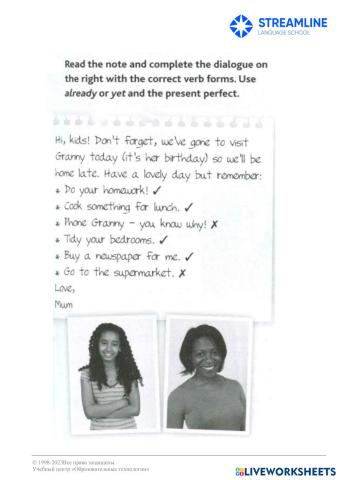 STREAMLINE
LANGUAGE SCHOOL
Read the note and complete the dialogue on
the right with the correct verb forms. Use
already or yet and the present perfect.
Hi, kids! Don't forget, we've gone to visit
Granny today (it's her birthday) so we'll be
home late. Have a lovely day but remember:
* Do your homework! ✓
* Cook something for lunch. ✓
* Phone Granny - you know why! ✗
* Tidy your bedrooms. ✓
* Buy a newspaper for me. ✓
* Go to the supermarket. ✗
Love,
Mum
© 1998-2023Все права защищены.
Учебный центр «Образовательные технологии»
LIVEWORKSHEETS